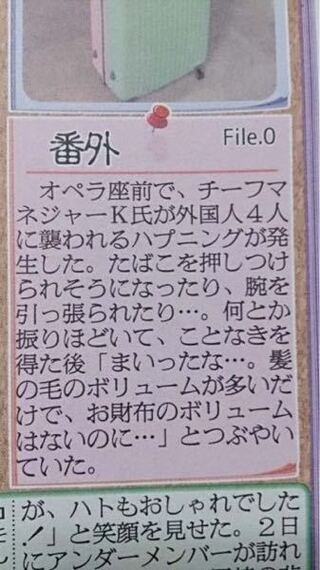 番外
File.0
オペラ座前で、チーフマ
ネジャーK氏が外国人4人
に襲われるハプニングが発
生した。たばこを押しつけ
られそうになったり、腕を
引っ張られたり…。何とか
振りほどいて、ことなきを
得た後「まいったな…。髪
の毛のボリュームが多いだ
けで、お財布のボリューム
はないのに…」とつぶやい
ていた。
が、ハトもおしゃれでした
!」と笑顔を見せた。2日
にアンダーメンバーが訪れ